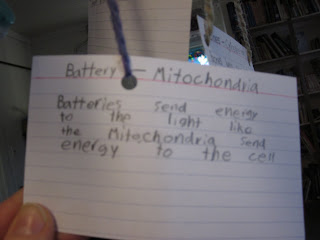 Battery — Mitochondria
Batteries send energy
to the light like
the Mitochondria send
energy to the cell